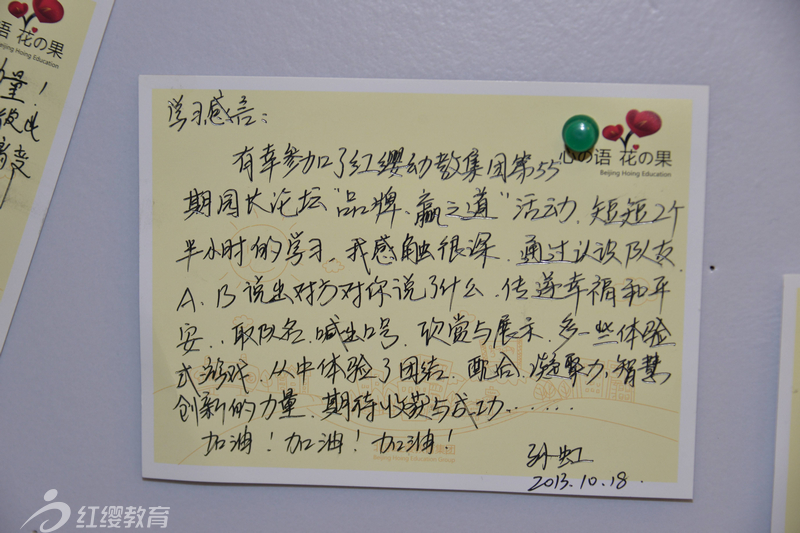 语 花の果
Beijing Hoing Education
量！
学习感言：
心の语 花の果
Beijing Hoing Education
有幸参加了红缨幼教集团第55
期园长论坛“品牌、赢之道”活动，短短2个
半小时的学习，我感触很深，通过认识队友，
A、B说出对方对你说了什么，传递幸福和平
安，取队名，喊出口号，欣赏与展示，多一些体验
式游戏，从中体验了团结、配合、凝聚力，智慧，
创新的力量，期待收获与成功……
加油！加油！加油！
孙虹
2013.10.18.
红缨教育